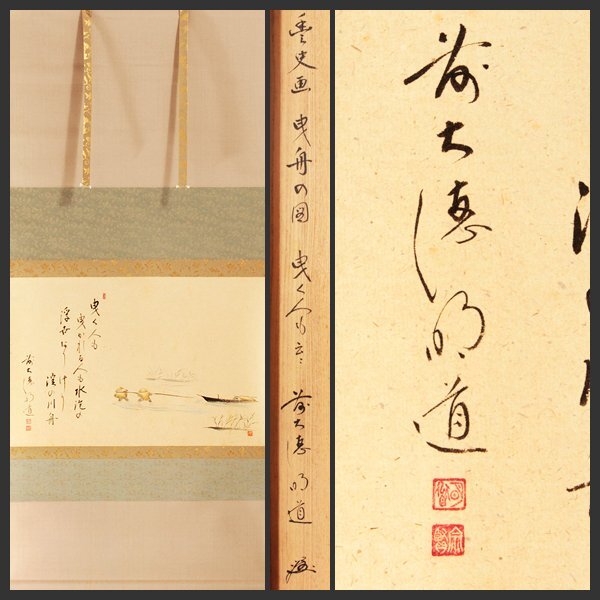 曳く人も
曳かれる人も水泡の
浮世なりけり
淀の川舟
前大徳明道
画 曳舟の図 曳く人も云々 前大徳明道
前大徳明道